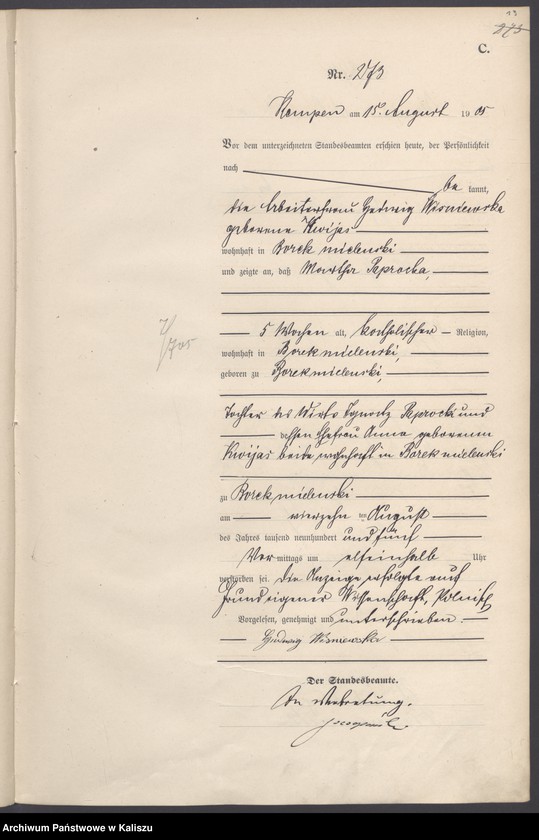 19
273
C.
Nr. 273
Kempen am 15. August 1905
Vor dem unterzeichneten Standesbeamten erschien heute, der Persönlichkeit
nach
be kannt,
die Arbeiterfrau Hedwig Wisniewska
geborene Kwijas
wohnhaft in Borek mielenski
und zeigte an, daß Martha Paprocka,
5 Wochen alt, katholischer Religion,
wohnhaft in Borek mielenski,
geboren zu Borek mielenski,
Tochter des Wirts Ignatz Paprocki und
dessen Ehefrau Anna geborenen
Kwijas beide wohnhaft in Borek mielenski
zu Borek mielenski
am vierzehn ten August
des Jahres tausend neunhundert und fünf
Vor mittags um elfeinhalb Uhr
verstorben sei. Die Anzeige erfolgte auf
Grund eigener Wissenschaft,
Vorgelesen, genehmigt und unterschrieben.
Hedwig Wisniewska
Der Standesbeamte.
In Vertretung.
Archiwum Państwowe w Kaliszu